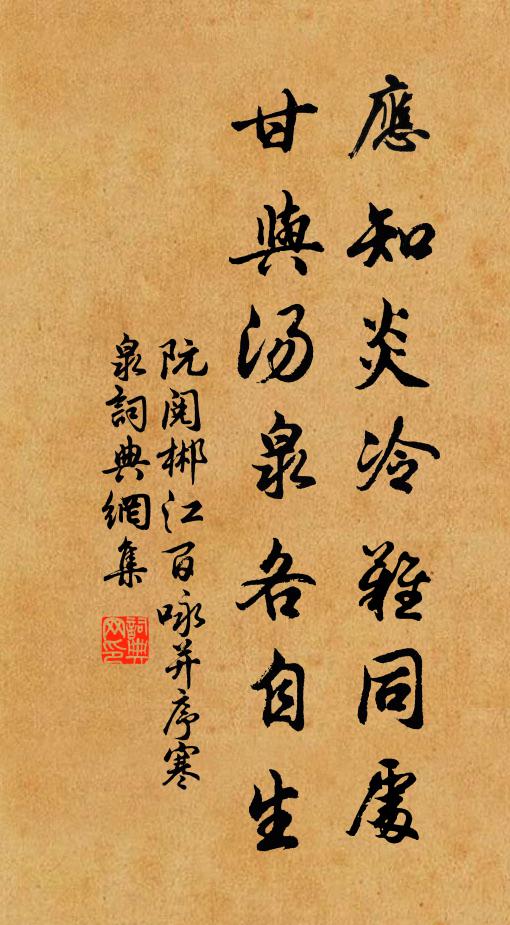 應知炎冷難同處
甘與汤泉各自生
阮閱郴江百咏并序寒
泉詞典網集
詞典网印